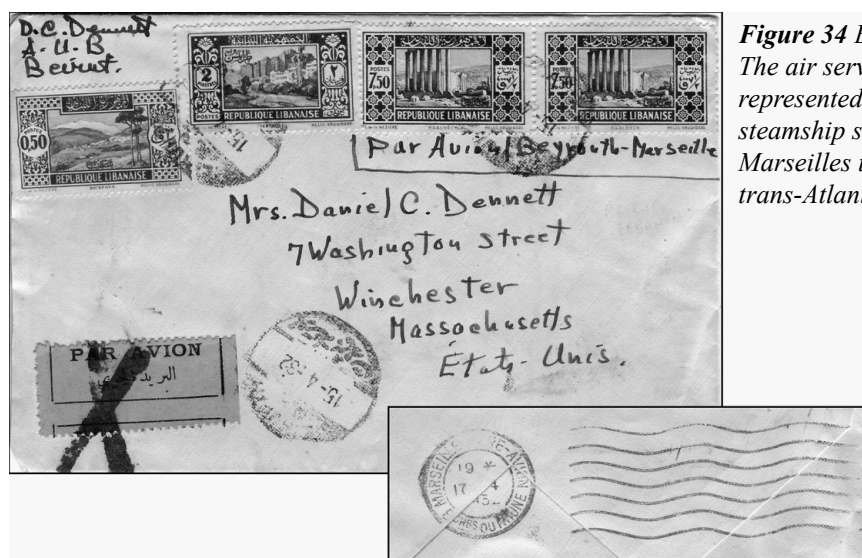 D.C. Dennett
A.U.B
Beirut.
POSTES
0,50
REPUBLIQUE LIBANAISE
2
٢
POSTES
REPUBLIQUE LIBANAISE
POSTES
7,50
REPUBLIQUE LIBANAISE
POSTES
7,50
REPUBLIQUE LIBANAISE
Par Avion/Beyrouth-Marseille
Mrs. Daniel C. Dennett
7 Washington Street
Winchester
Massachusetts
États-Unis.
PAR AVION
البريد الجوي
15-4-32
MARSEILLE GARE-AVION
19 *
17 4
32
Figure 34
The air serv
represented
steamship s
Marseilles
trans-Atlan